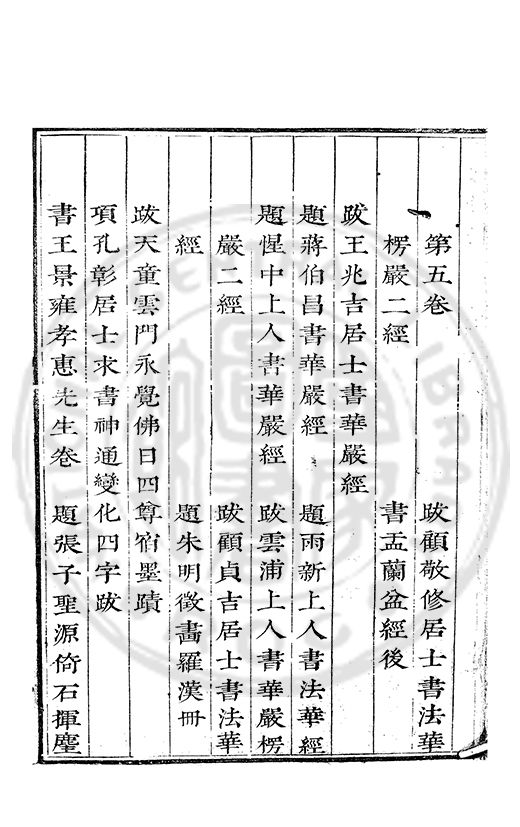 第五卷　跋顧敬修居士書法華
楞嚴二經　書盂蘭盆經後
跋王兆吉居士書華嚴經
題蔣伯昌書華嚴經　題雨新上人書法華經
題惺中上人書華嚴經　跋雲浦上人書華嚴楞
嚴二經　跋顧貞吉居士書法華
經　題朱明徵畵羅漢冊
跋天童雲門永覺佛日四尊宿墨蹟
項孔彰居士求書神通變化四字跋
書王景雍孝惠先生卷　題張子聖源倚石揮麈